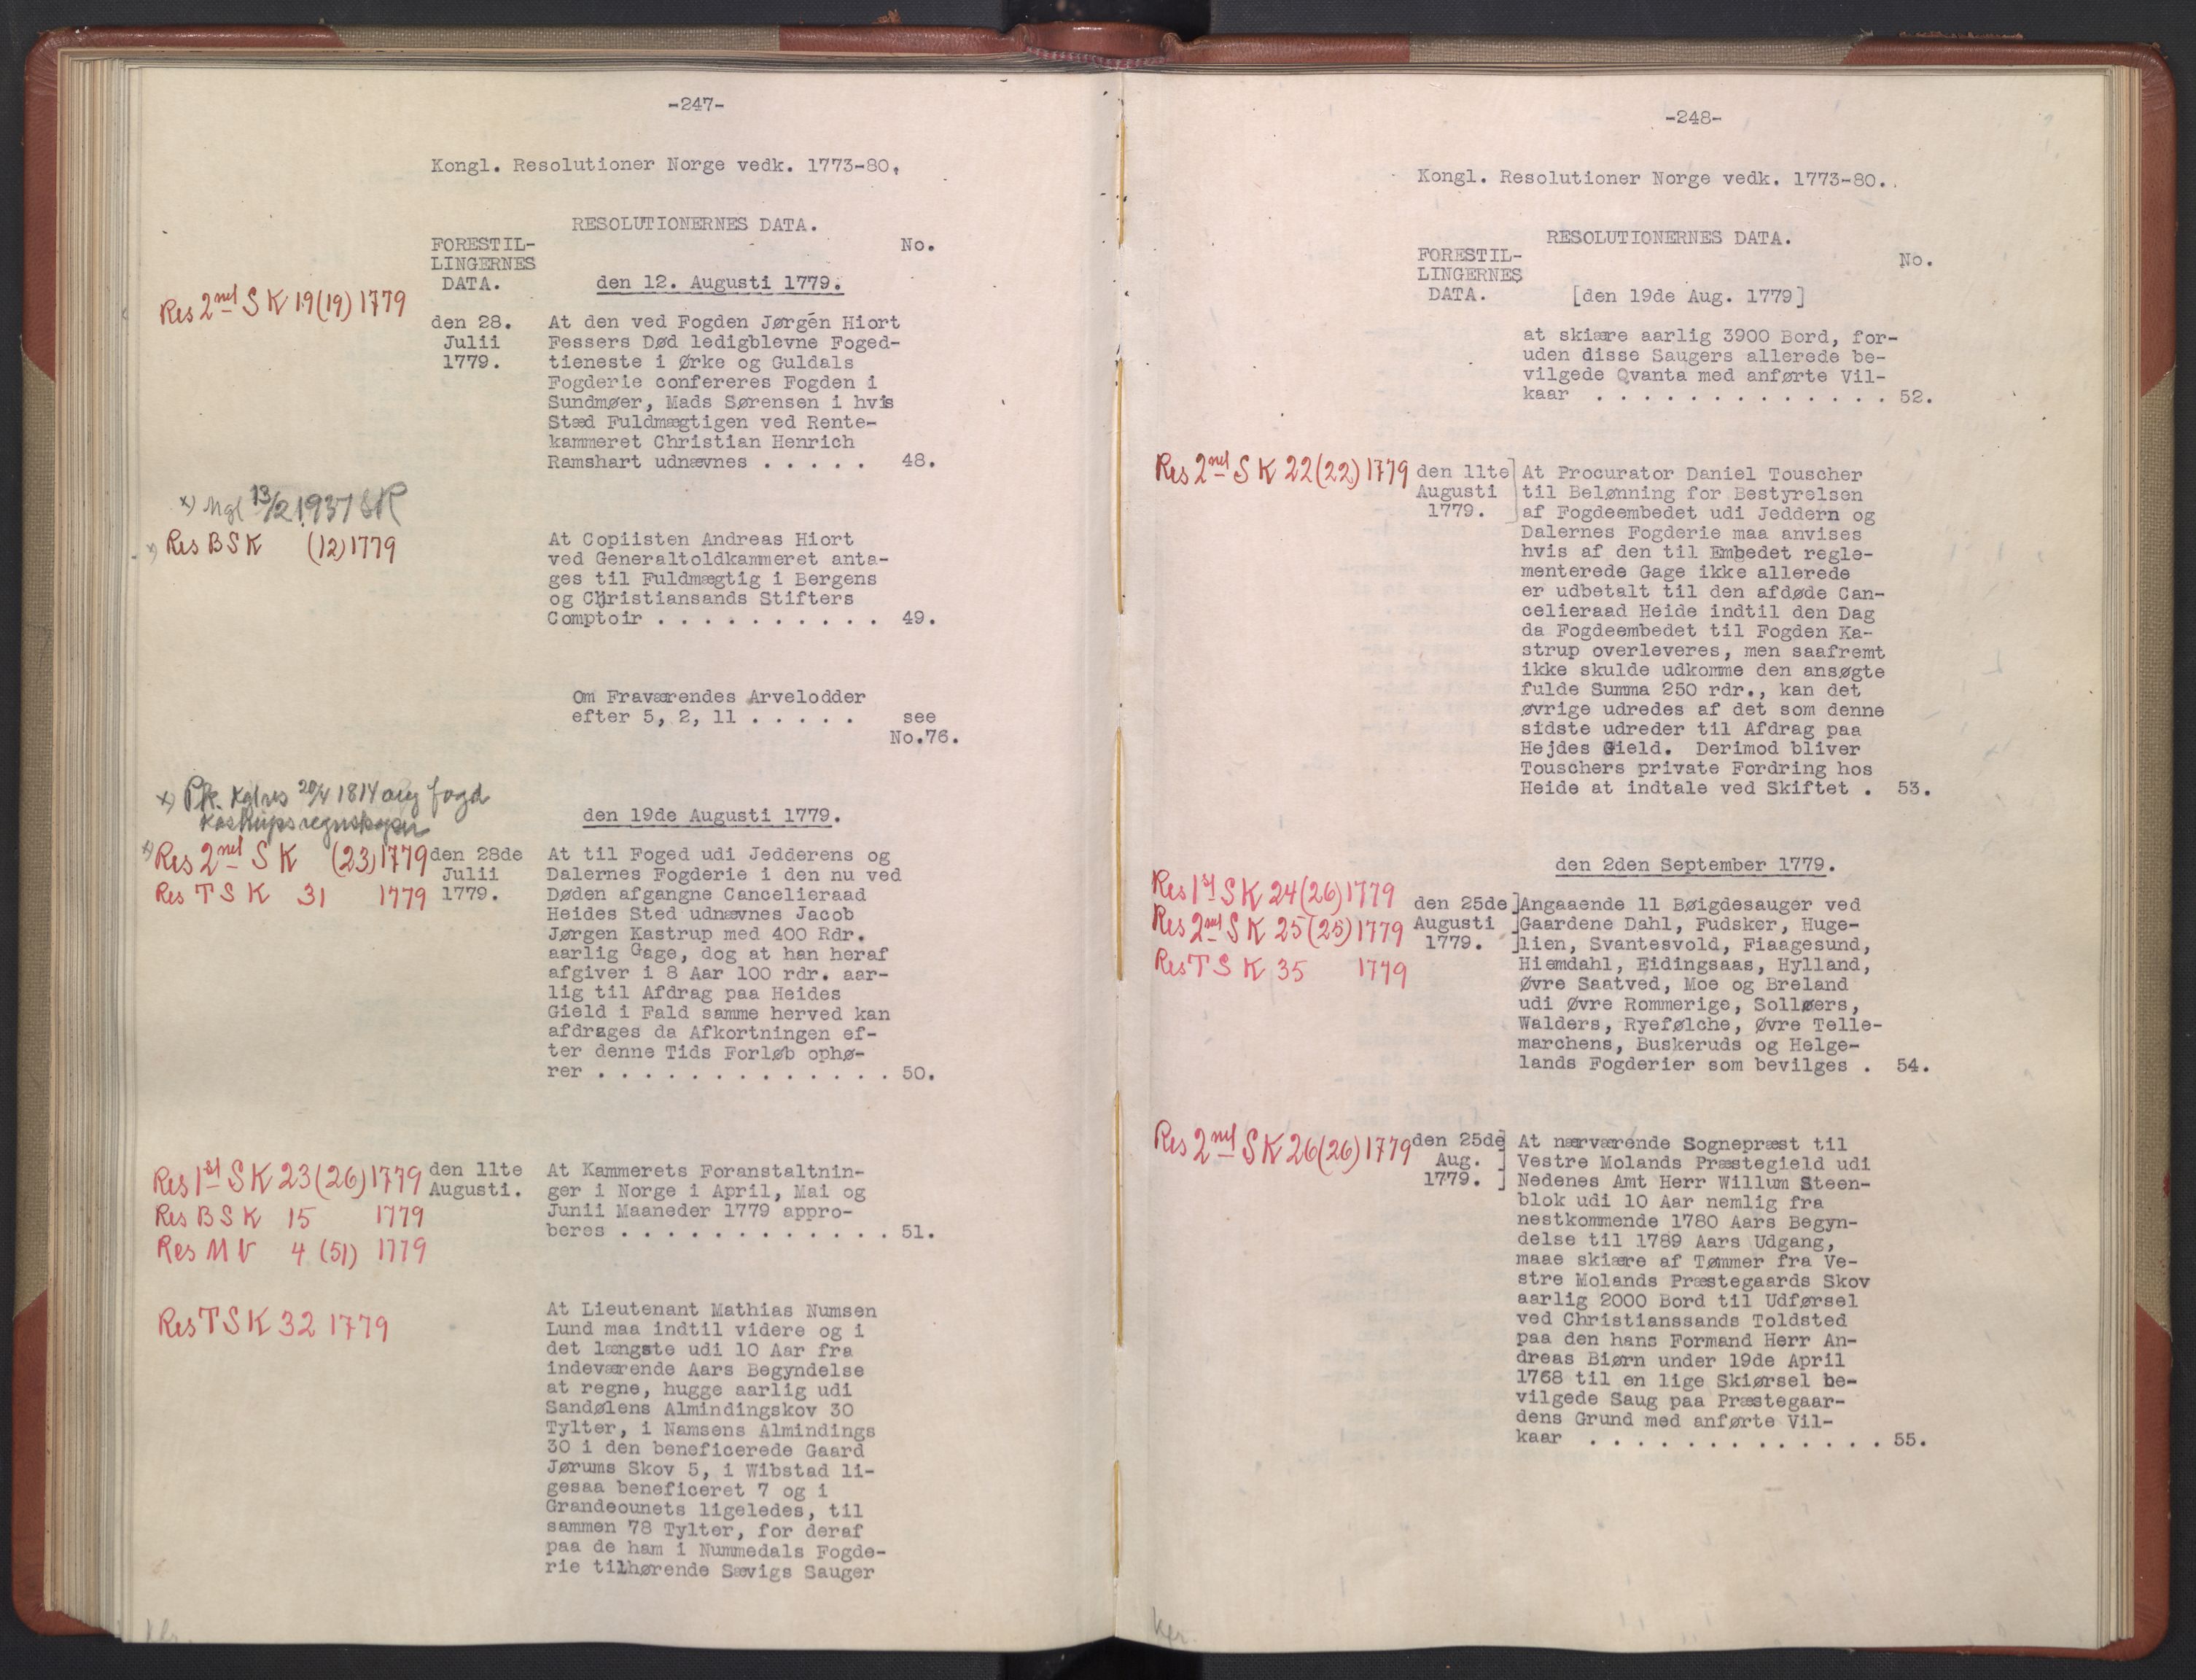 -247-
Kongl. Resolutioner Norge vedk. 1773-80.
RESOLUTIONERNES DATA.
FORESTIL-
LINGERNES
DATA.
No.
den 12. Augusti 1779.
Res 2net S K 19(19) 1779
den 28.
Julii
1779.
At den ved Fogden Jørgen Hiort
Fessers Død ledigblevne Foged-
tieneste i Ørke og Guldals
Fogderie confereres Fogden i
Sundmøer, Mads Sørensen i hvis
Stæd Fuldmægtigen ved Rente-
kammeret Christian Henrich
Ramshart udnævnes . . . . . 48.
x) Mgl 13/2 1937 SK
x) Res B S K (12) 1779
At Copiisten Andreas Hiort
ved Generaltoldkammeret anta-
ges til Fuldmægtig i Bergens
og Christiansands Stifters
Comptoir . . . . . . . . . . 49.
Om Fraværendes Arvelodder
efter 5, 2, 11 . . . . . see
No.76.
x) Pk. Kglres 20/4 1814 ang fogd
Kastrups regnskaper
den 19de Augusti 1779.
x) Res 2net S K (23) 1779
Res T S K 31 1779
den 28de
Julii
1779.
At til Foged udi Jedderens og
Dalernes Fogderie i den nu ved
Døden afgangne Cancelieraad
Heides Sted udnævnes Jacob
Jørgen Kastrup med 400 Rdr.
aarlig Gage, dog at han heraf
afgiver i 8 Aar 100 rdr. aar-
lig til Afdrag paa Heides
Gield i Fald samme herved kan
afdrages da Afkortningen ef-
ter denne Tids Forløb ophø-
rer . . . . . . . . . . . . . 50.
Res 1st S K 23 (26) 1779
Res B S K 15 1779
Res M V 4 (51) 1779
den 11te
Augusti.
At Kammerets Foranstaltnin-
ger i Norge i April, Mai og
Junii Maaneder 1779 appro-
beres . . . . . . . . . . . . 51.
Res T S K 32 1779
At Lieutenant Mathias Numsen
Lund maa indtil videre og i
det længste udi 10 Aar fra
indeværende Aars Begyndelse
at regne, hugge aarlig udi
Sandølens Almindingskov 30
Tylter, i Namsens Almindings
30 i den beneficerede Gaard
Jørums Skov 5, i Wibstad li-
gesaa beneficeret 7 og i
Grandeounets ligeledes, til
sammen 78 Tylter, for deraf
paa de ham i Nummedals Fogde-
rie tilhørende Sævigs Sauger
-248-
Kongl. Resolutioner Norge vedk. 1773-80.
RESOLUTIONERNES DATA.
FORESTIL-
LINGERNES
DATA.
No.
[den 19de Aug. 1779]
at skiære aarlig 3900 Bord, for-
uden disse Saugers allerede be-
vilgede Qvanta med anførte Vil-
kaar . . . . . . . . . . . . . 52.
Res 2net S K 22(22) 1779
den 11te
Augusti
1779.
At Procurator Daniel Touscher
til Belønning for Bestyrelsen
af Fogdeembedet udi Jeddern og
Dalernes Fogderie maa anvises
hvis af den til Embedet regle-
menterede Gage ikke allerede
er udbetalt til den afdøde Can-
celieraad Heide indtil den Dag
da Fogdeembedet til Fogden Ka-
strup overleveres, men saafremt
ikke skulde udkomme den ansøgte
fulde Summa 250 rdr., kan det
øvrige udredes af det som denne
sidste udreder til Afdrag paa
Hejdes Gield. Derimod bliver
Touschers private Fordring hos
Heide at indtale ved Skiftet . 53.
den 2den September 1779.
Res 1st S K 24(26) 1779
Res 2net S K 25(25) 1779
Res T S K 35 1779
den 25de
Augusti
1779.
Angaaende 11 Bøigdesauger ved
Gaardene Dahl, Fudsker, Huge-
lien, Svantesvold, Fiaagesund,
Hiemdahl, Eidingsaas, Hylland,
Øvre Saatved, Moe og Breland
udi Øvre Rommerige, Solløers,
Walders, Ryefølche, Øvre Telle-
marchens, Buskeruds og Helge-
lands Fogderier som bevilges . 54.
Res 2net S K 26(26) 1779
den 25de
Aug.
1779.
At nærværende Sognepræst til
Vestre Molands Præstegield udi
Nedenes Amt Herr Willum Steen-
blok udi 10 Aar nemlig fra
nestkommende 1780 Aars Begyn-
delse til 1789 Aars Udgang,
maae skiære af Tømmer fra Ve-
stre Molands Præstegaards Skov
aarlig 2000 Bord til Udførsel
ved Christianssands Toldsted
paa den hans Formand Herr An-
dreas Biørn under 19de April
1768 til en lige Skiørsel be-
vilgede Saug paa Præstegaar-
dens Grund med anførte Vil-
kaar . . . . . . . . . . . . . 55.
kfr.